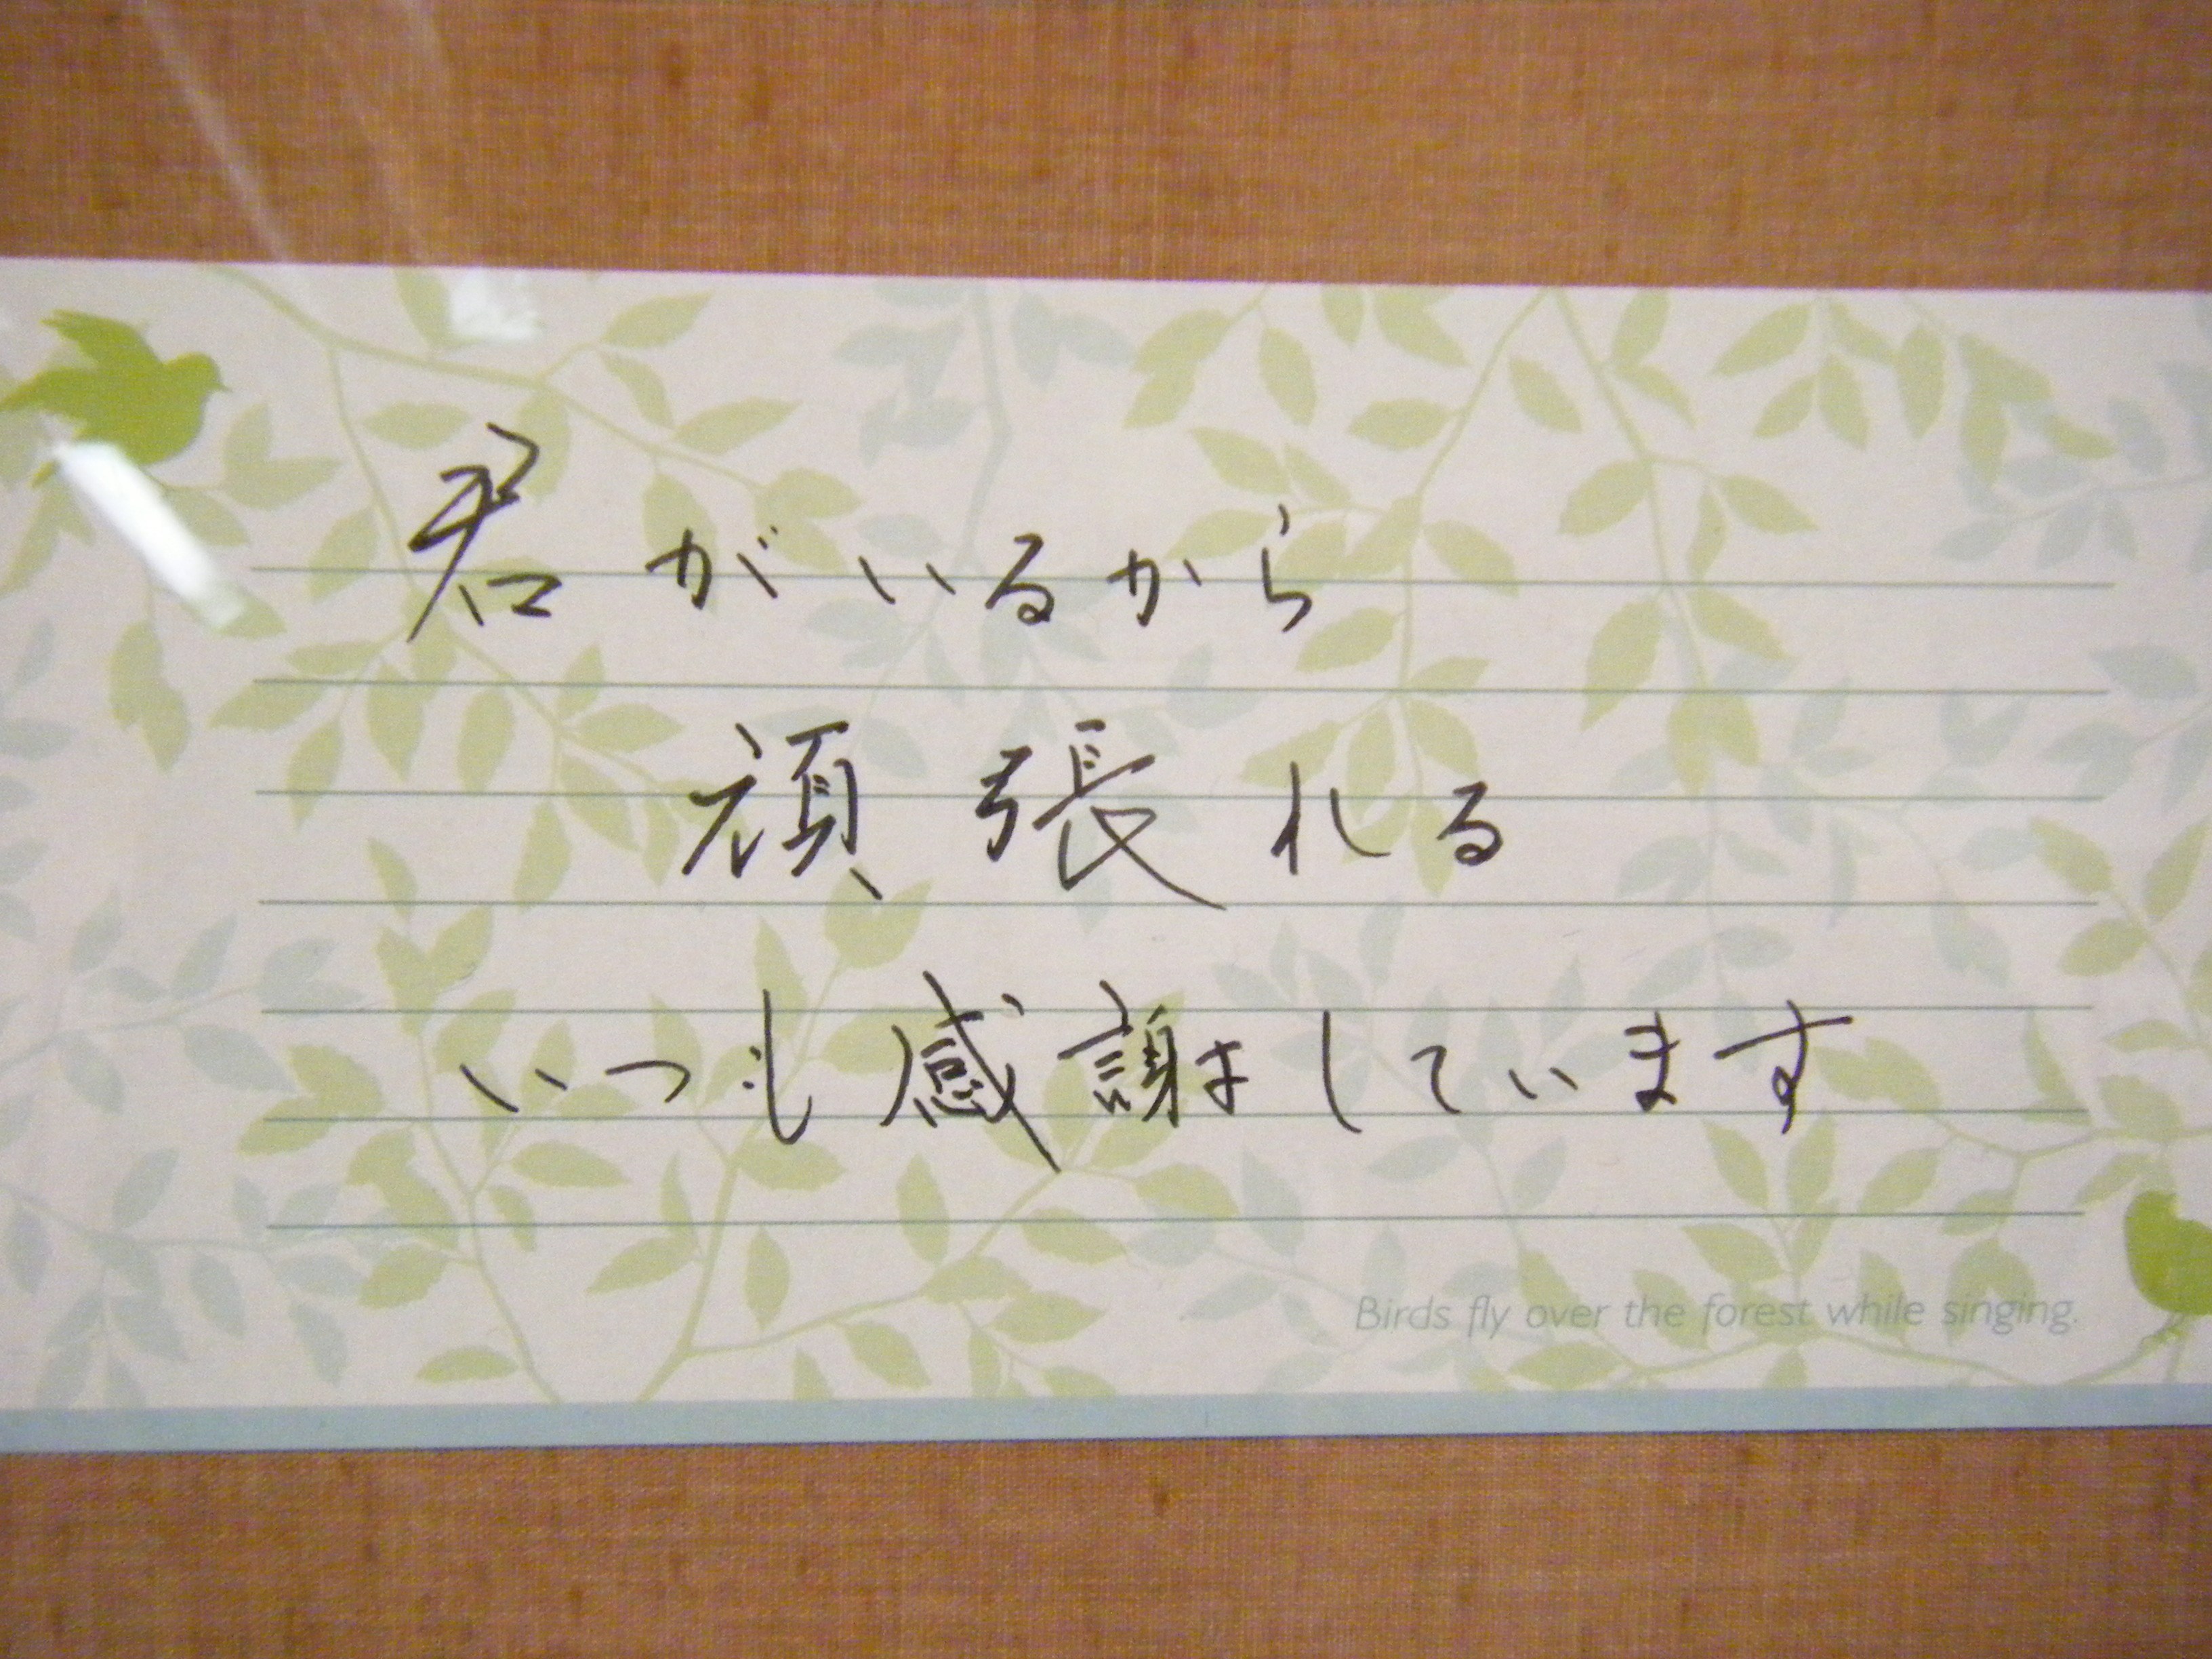 君がいるから
頑張れる
いつも感謝しています
Birds fly over the forest while singing.